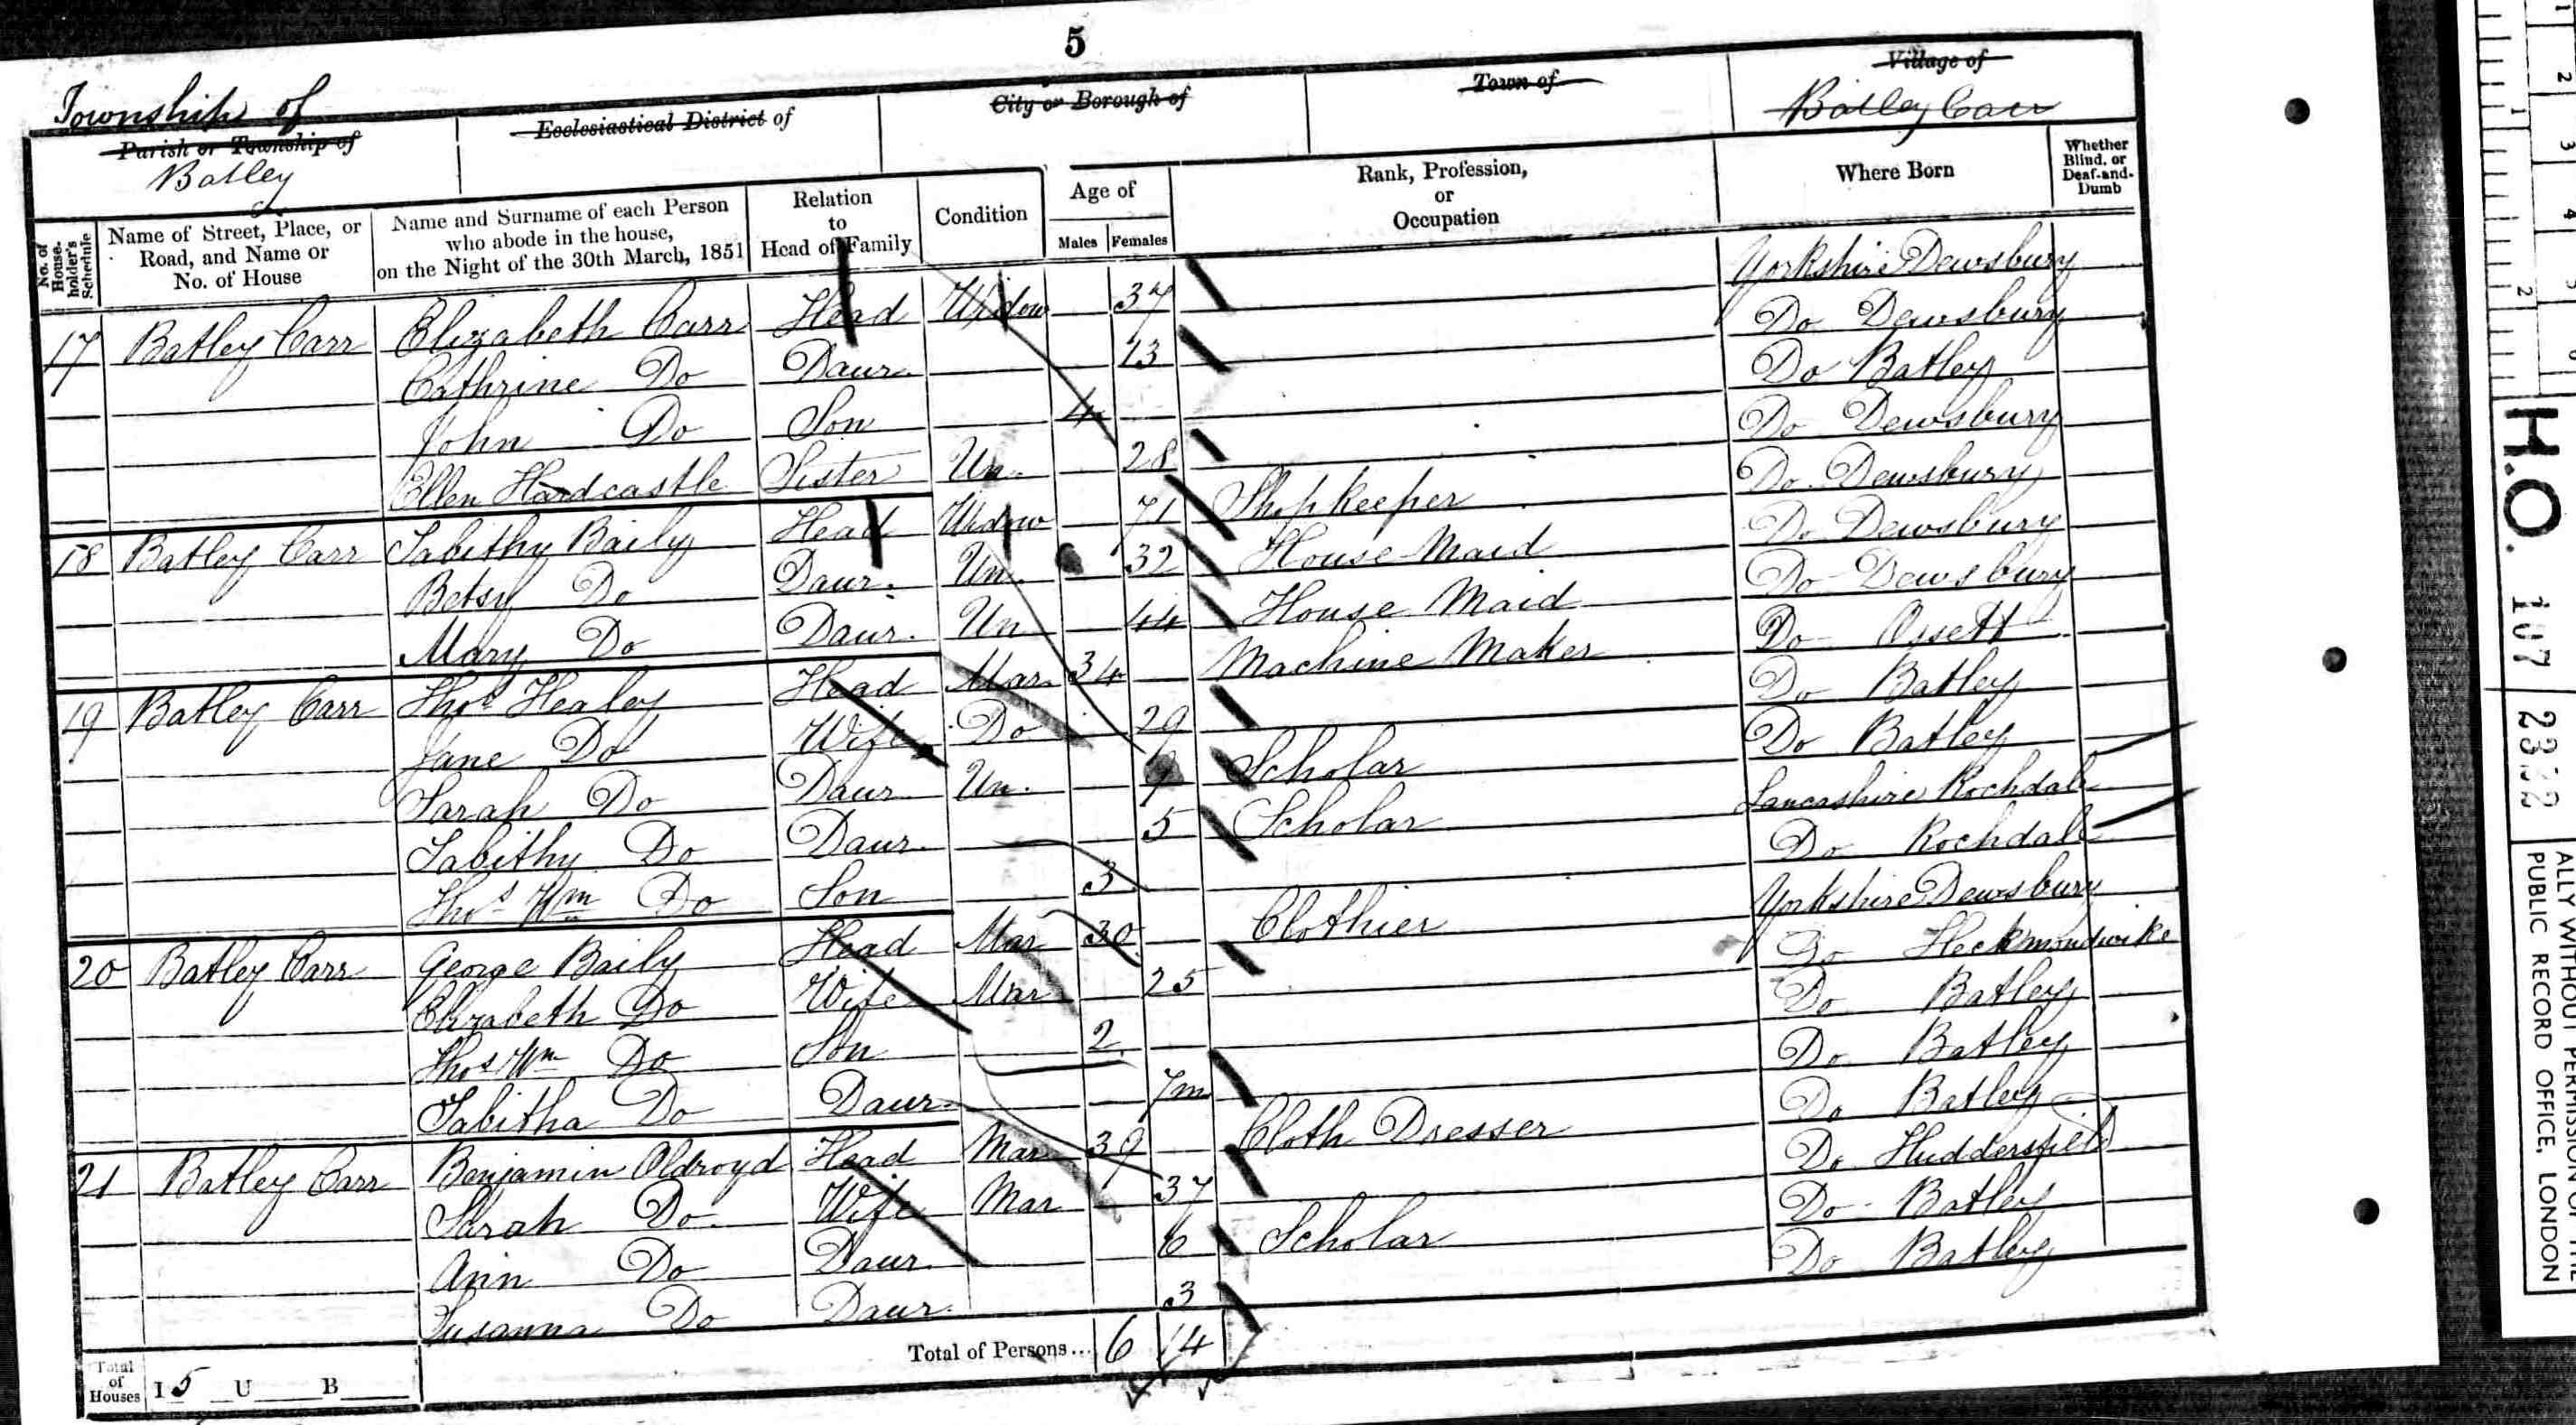 5
Township of
Parish or Township of
Batley
Ecclesiastical District of
City or Borough of
Town of
Village of
Batley Carr
No. of House-holder's Schedule
Name of Street, Place, or Road, and Name or No. of House
Name and Surname of each Person who abode in the house, on the Night of the 30th March, 1851
Relation to Head of Family
Condition
Age of
Males Females
Rank, Profession, or Occupation
Where Born
Whether Blind, or Deaf-and-Dumb
17 Batley Carr Elizabeth Carr Head Widow 37 Yorkshire Dewsbury
Cathrine Do Daur. 13 Do Dewsbury
John Do Son 4 Do Batley
Ellen Hardcastle Sister Un. 28 Do Dewsbury
18 Batley Carr Tabithy Baily Head Widow 71 Shopkeeper Do Dewsbury
Betsy Do Daur. Un. 32 House Maid Do Dewsbury
Mary Do Daur. Un 44 House Maid Do Dewsbury
19 Batley Carr Thos Healey Head Mar. 34 Machine Maker Do Ossett
Jane Do Wife Do 29 Do Batley
Sarah Do Daur Un. Scholar Do Batley
Tabithy Do Daur. 5 Scholar Lancashire Rochdale
Thos Wm Do Son 3 Do Rochdale
20 Batley Carr George Baily Head Mar 30 Clothier Yorkshire Dewsbury
Elizabeth Do Wife Mar 25 Do Heckmondwike
Thos Wm Do Son 2 Do Batley
Tabitha Do Daur. 7m Do Batley
21 Batley Carr Benjamin Oldroyd Head Mar 39 Cloth Dresser Do Batley
Sarah Do. Wife Mar 37 Do Huddersfield
Ann Do Daur. 6 Scholar Do Batley
Susanna Do Daur. 3 Do Batley
Total of Houses I 5 U B
Total of Persons... 6 14
H.O. 107
PUBLIC RECORD OFFICE, LONDON